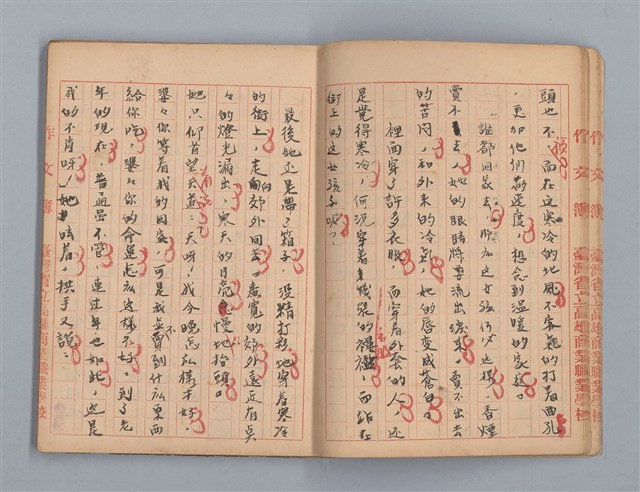 頭也不，而在這寒冷的地風不客氣的打着面孔
，更加他們的速度，想念到溫暖的家庭。
誰都回家去，那么這女孩何必这樣，香煙
賣不去，她的眼睛將要流出淚，賣不出去
的苦悶，和外來的冷氣，她的唇变成蒼白。
裡面穿了許多衣服，面穿着外套的人，还
是覚得寒冷，何況穿着幾張的襤褸，而站在
街上的这女孩子呢。
最後她还是帶了箱子，沒精打彩地穿着寒冷
的街上，走向郊外回去。廣寬的郊外遠近有点
々的燈光漏出，寒天的月亮慢地抬頭。
她只仰首望天道：天呀！我今晚怎么樣才好。
婆々你等着我的回家，可是我並不賣到什么東西
給你吃，婆々你的命運怎么这樣不好，到了老
年的現在，普通是不管，連过年也如此，这是
我的不肖呀，她咳着，拱手又說：
作文簿 臺灣省立高雄商業職業學校
作文簿 臺灣省立高雄商業職業學校